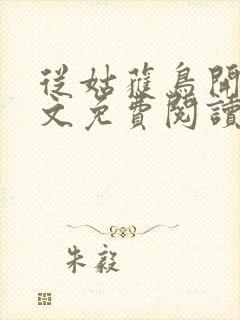 從姑蘿鳥開
文免費閱讀
朱毅